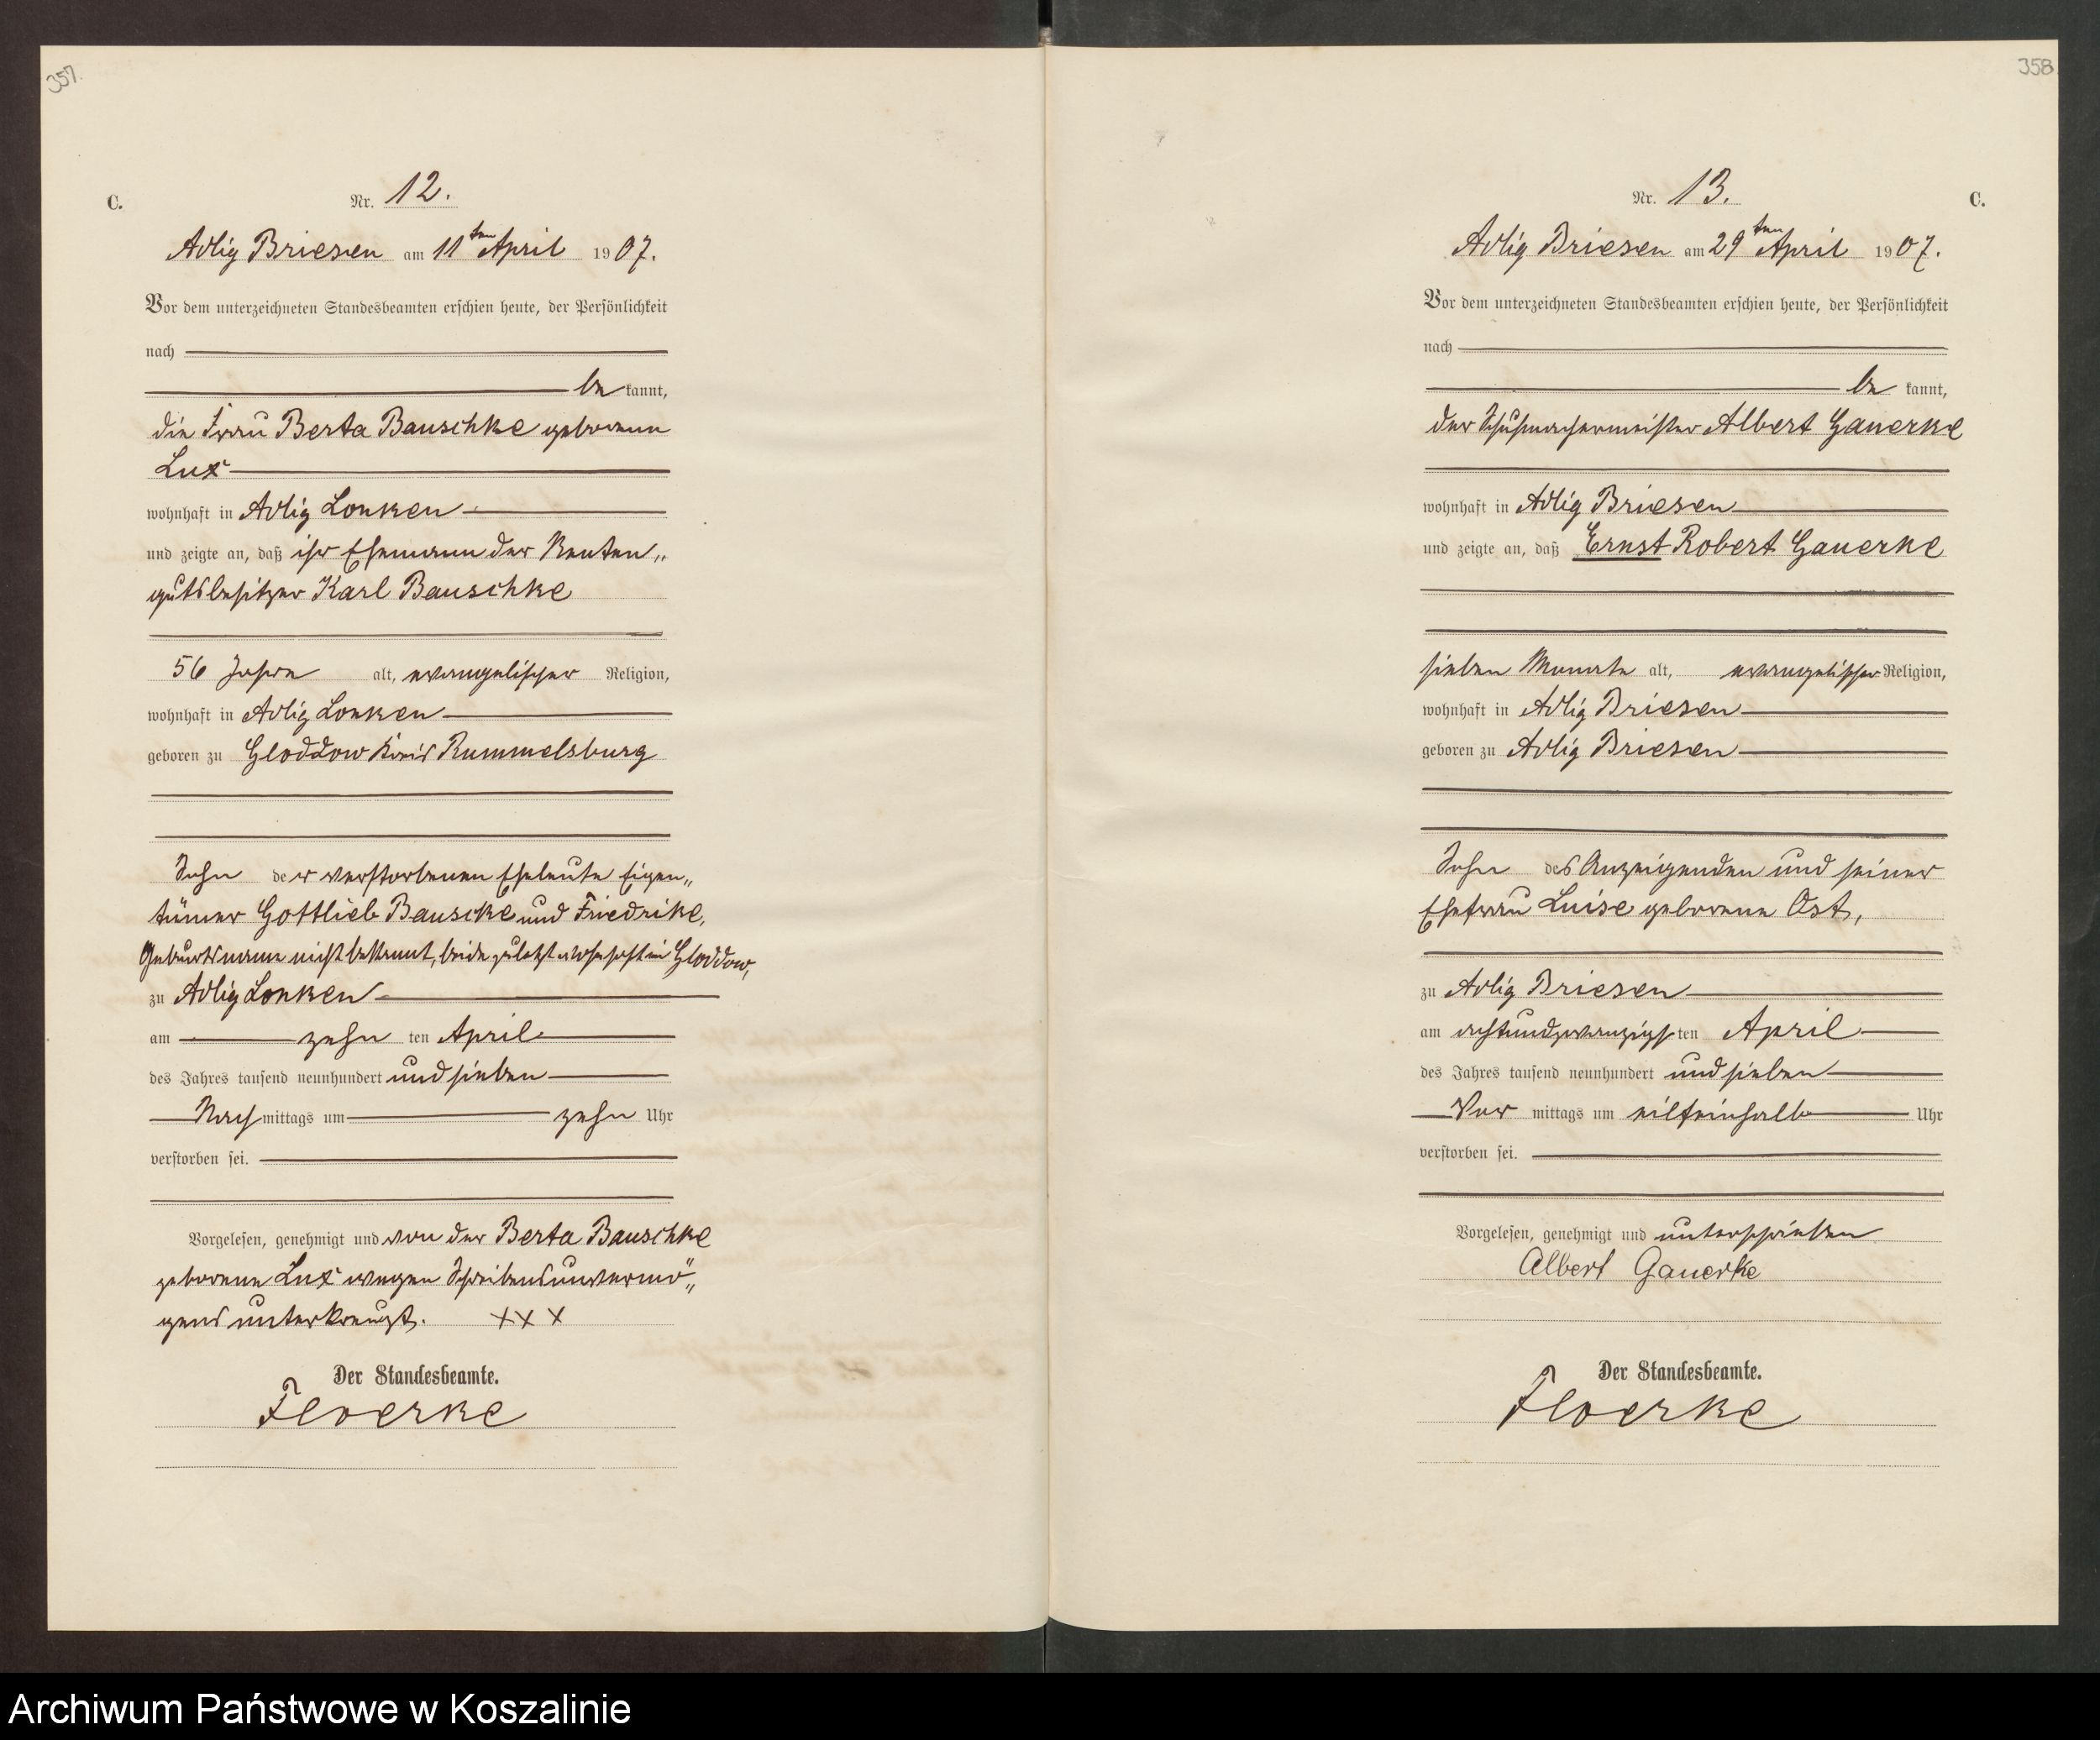 357.
C.
Nr. 12.
Adlig Briesen am 11ten April 1907.
Vor dem unterzeichneten Standesbeamten erschien heute, der Persönlichkeit
nach
be kannt,
die Frau Berta Bauschke geborene
Lux
wohnhaft in Adlig Lonken
und zeigte an, daß ihr Ehemann der Renten„
gutsbesitzer Karl Bauschke
56 Jahre alt, evangelischer Religion,
wohnhaft in Adlig Lonken
geboren zu Gloddow Kreis Rummelsburg
Sohn der verstorbenen Eheleute Eigen„
tümer Gottlieb Bauscke und Friedrike,
Geburtsname nicht bekannt, beide zuletzt wohnhaft in Gloddow,
zu Adlig Lonken
am zehn ten April
des Jahres tausend neunhundert und sieben
Nach mittags um zehn Uhr
verstorben sei.
Vorgelesen, genehmigt und von der Berta Bauschke
geborene Lux wegen Schreibensunvermö„
gens unterkreuzt. XXX
Der Standesbeamte.
Floerke
358
C.
Nr. 13.
Adlig Briesen am 29ten April 1907.
Vor dem unterzeichneten Standesbeamten erschien heute, der Persönlichkeit
nach
be kannt,
der Schuhmachermeister Albert Gauerke
wohnhaft in Adlig Briesen
und zeigte an, daß Ernst Robert Gauerke
sieben Monate alt, evangelischer Religion,
wohnhaft in Adlig Briesen
geboren zu Adlig Briesen
Sohn des Anzeigenden und seiner
Ehefrau Luise geborene Ost,
zu Adlig Briesen
am achtundzwanzigsten April
des Jahres tausend neunhundert und sieben
Vor mittags um eilfeinhalb Uhr
verstorben sei.
Vorgelesen, genehmigt und unterschrieben
Albert Gauerke
Der Standesbeamte.
Floerke
Archiwum Państwowe w Koszalinie